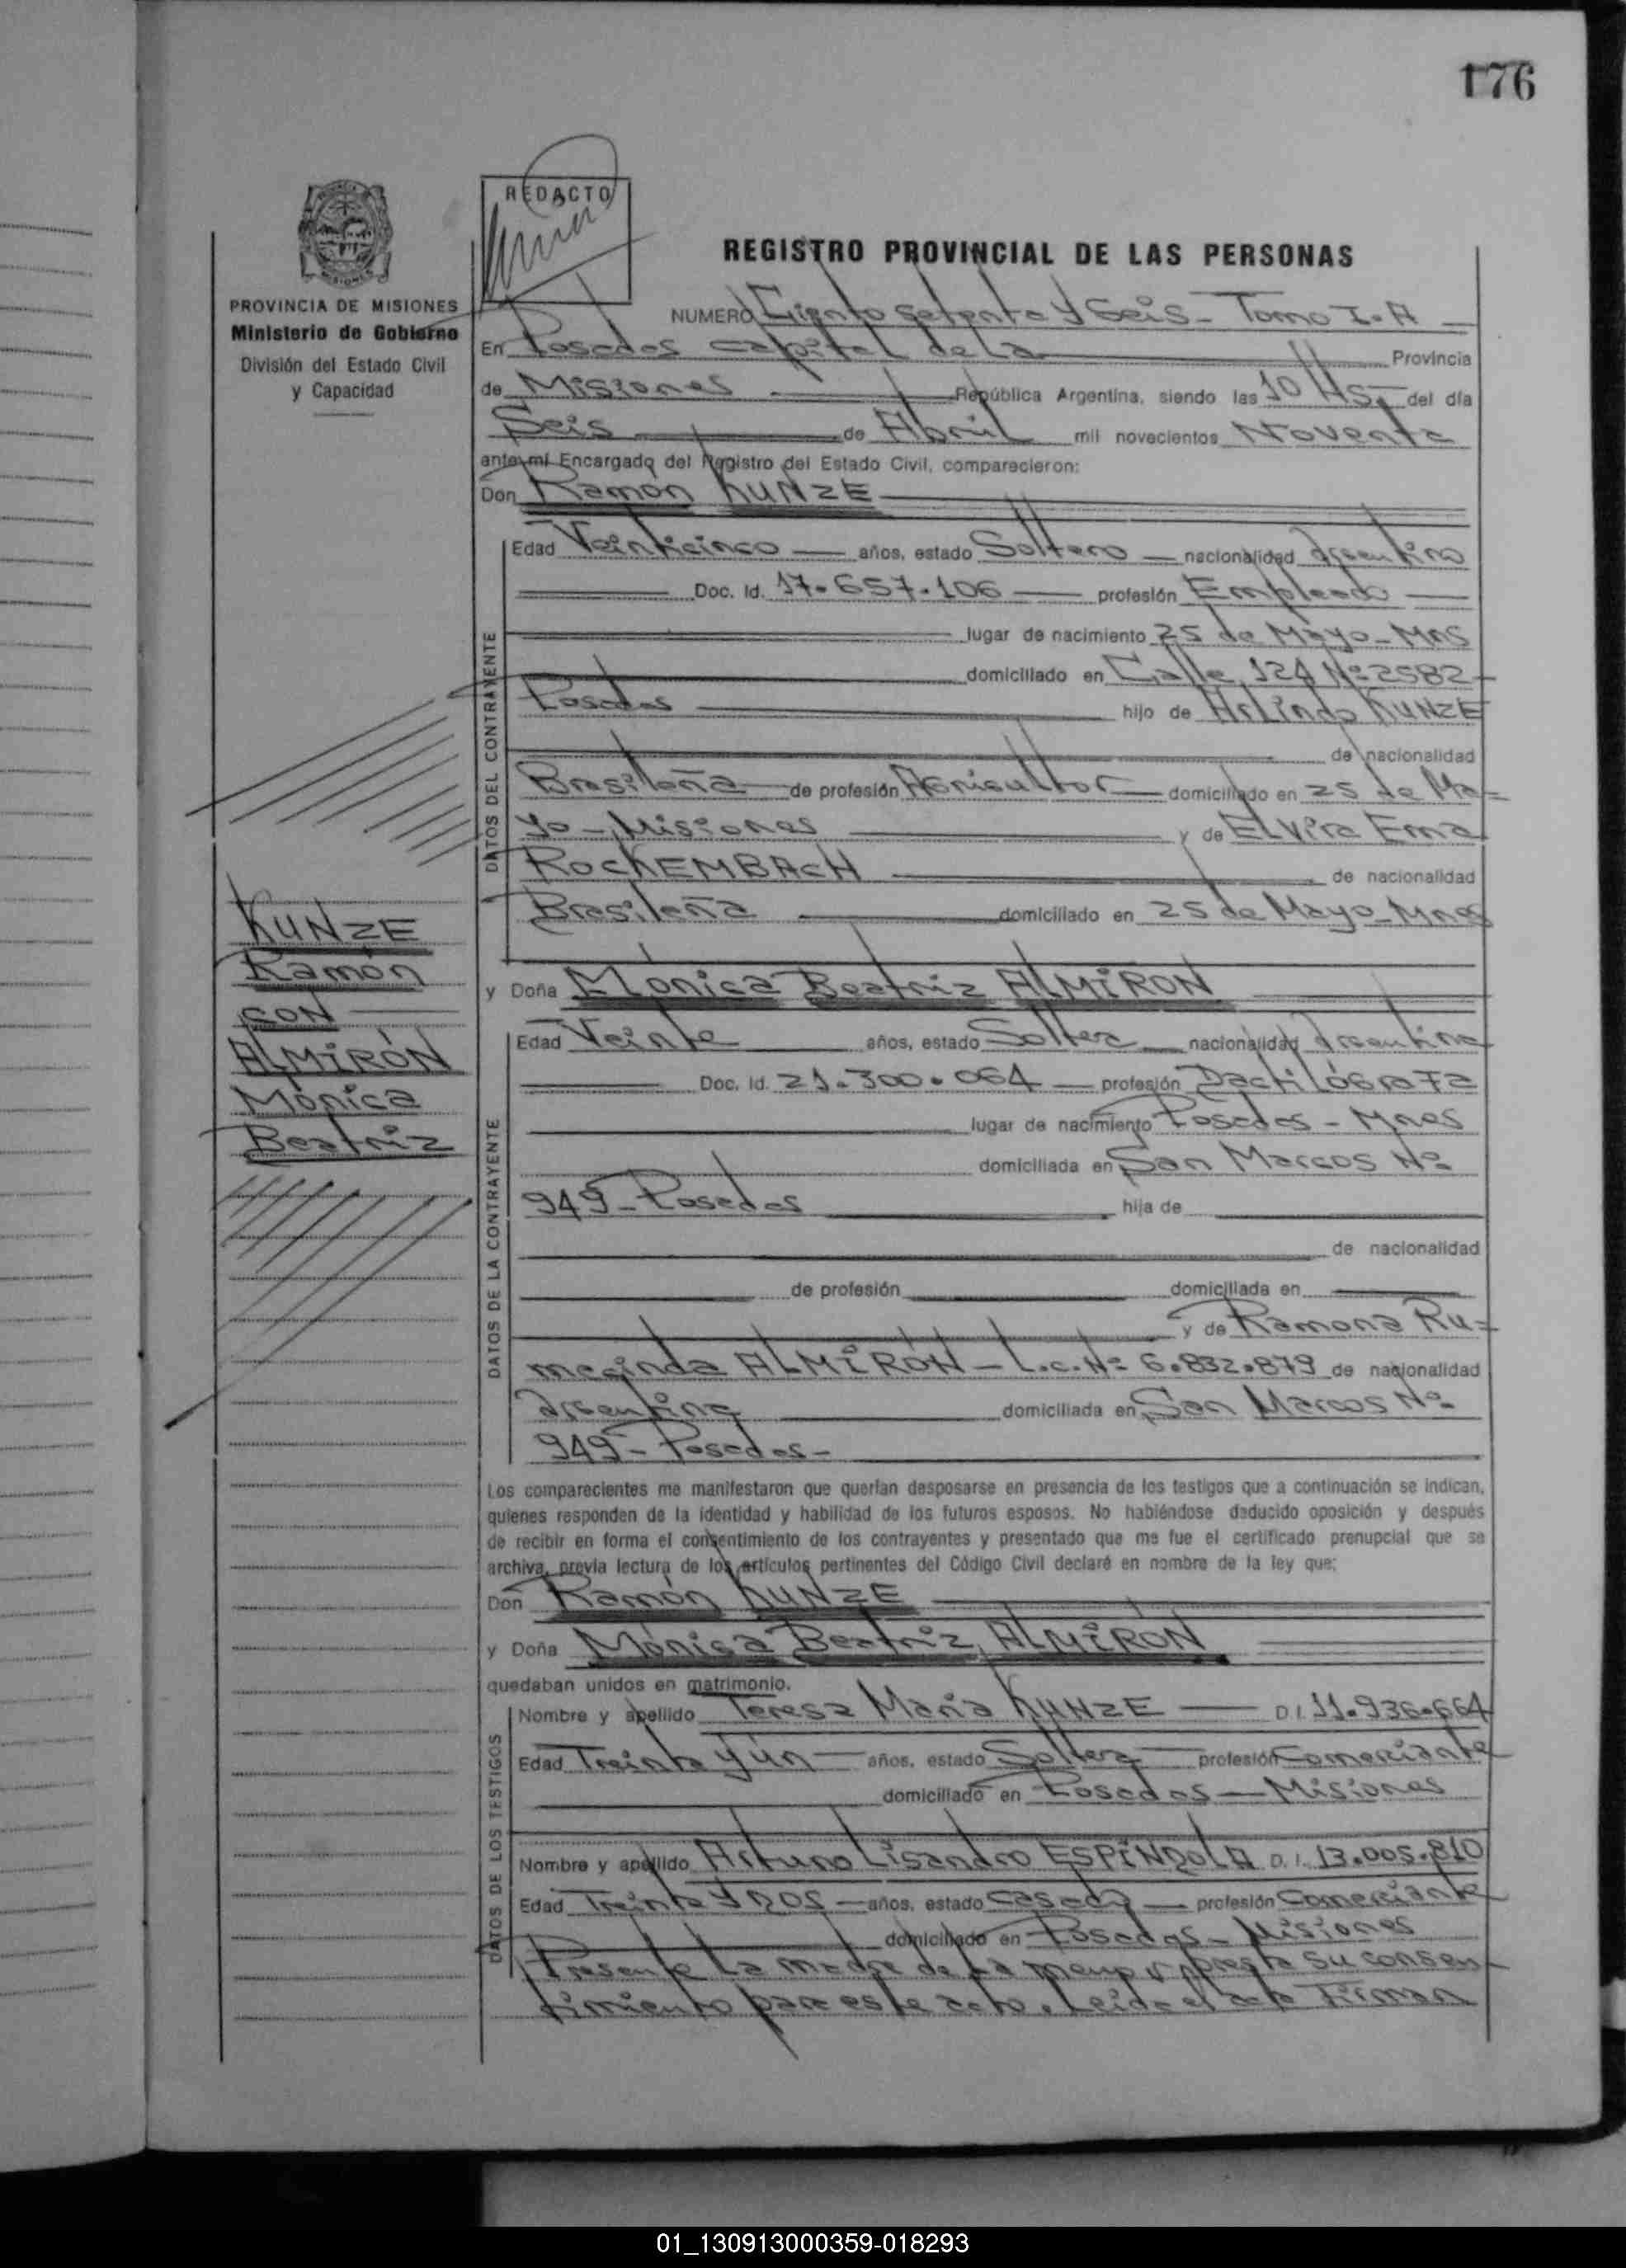 176
REDACTO
REGISTRO PROVINCIAL DE LAS PERSONAS
PROVINCIA DE MISIONES
Ministerio de Gobierno
División del Estado Civil
y Capacidad
NUMERO Ciento setenta y seis - Tomo I-A
En Posadas capital de la Provincia
de Misiones República Argentina, siendo las 10 Hs. del día
Seis de Abril mil novecientos Noventa
ante mi Encargado del Registro del Estado Civil, comparecieron:
Don Ramón KUNZE
DATOS DEL CONTRAYENTE
Edad Veinticinco años, estado Soltero nacionalidad Argentino
Doc. Id. 17.657.106 profesión Empleado
lugar de nacimiento 25 de Mayo - Mns
domiciliado en Calle 124 Nº 2582
Posadas hijo de Arlindo KUNZE
de nacionalidad
Brasileña de profesión Agricultor domiciliado en 25 de Ma=
yo - Misiones y de Elvira Erna
ROCKEMBACH de nacionalidad
Brasileña domiciliado en 25 de Mayo - Mnes
KUNZE
Ramón
CON
ALMIRÓN
Mónica
Beatriz
y Doña Mónica Beatriz ALMIRON
DATOS DE LA CONTRAYENTE
Edad Veinte años, estado Soltera nacionalidad Argentina
Doc. Id. 21.300.064 profesión Dactilógrafa
lugar de nacimiento Posadas - Mnes
domiciliada en San Marcos Nº
949 - Posadas hija de
de nacionalidad
de profesión domiciliada en
y de Ramona Ru=
mecinda ALMIRÓN - L.C. Nº 6.832.879 de nacionalidad
Argentina domiciliada en San Marcos Nº
949 - Posadas -
Los comparecientes me manifestaron que querían desposarse en presencia de los testigos que a continuación se indican,
quienes responden de la identidad y habilidad de los futuros esposos. No habiéndose deducido oposición y después
de recibir en forma el consentimiento de los contrayentes y presentado que me fue el certificado prenupcial que se
archiva, previa lectura de los artículos pertinentes del Código Civil declaré en nombre de la ley que:
Don Ramón KUNZE
y Doña Mónica Beatriz ALMIRON
quedaban unidos en matrimonio.
DATOS DE LOS TESTIGOS
Nombre y apellido Teresa María KUNZE D.I. 11.936.664
Edad Treinta y un años, estado Soltera profesión Comerciante
domiciliado en Posadas - Misiones
Nombre y apellido Arturo Lisandro ESPINDOLA D.I. 13.005.810
Edad Treinta y Dos años, estado Casado profesión Comerciante
domiciliado en Posadas - Misiones
Presente la madre de la menor presta su consen
timiento para este acto. Leida el acta Firman
01_130913000359-018293